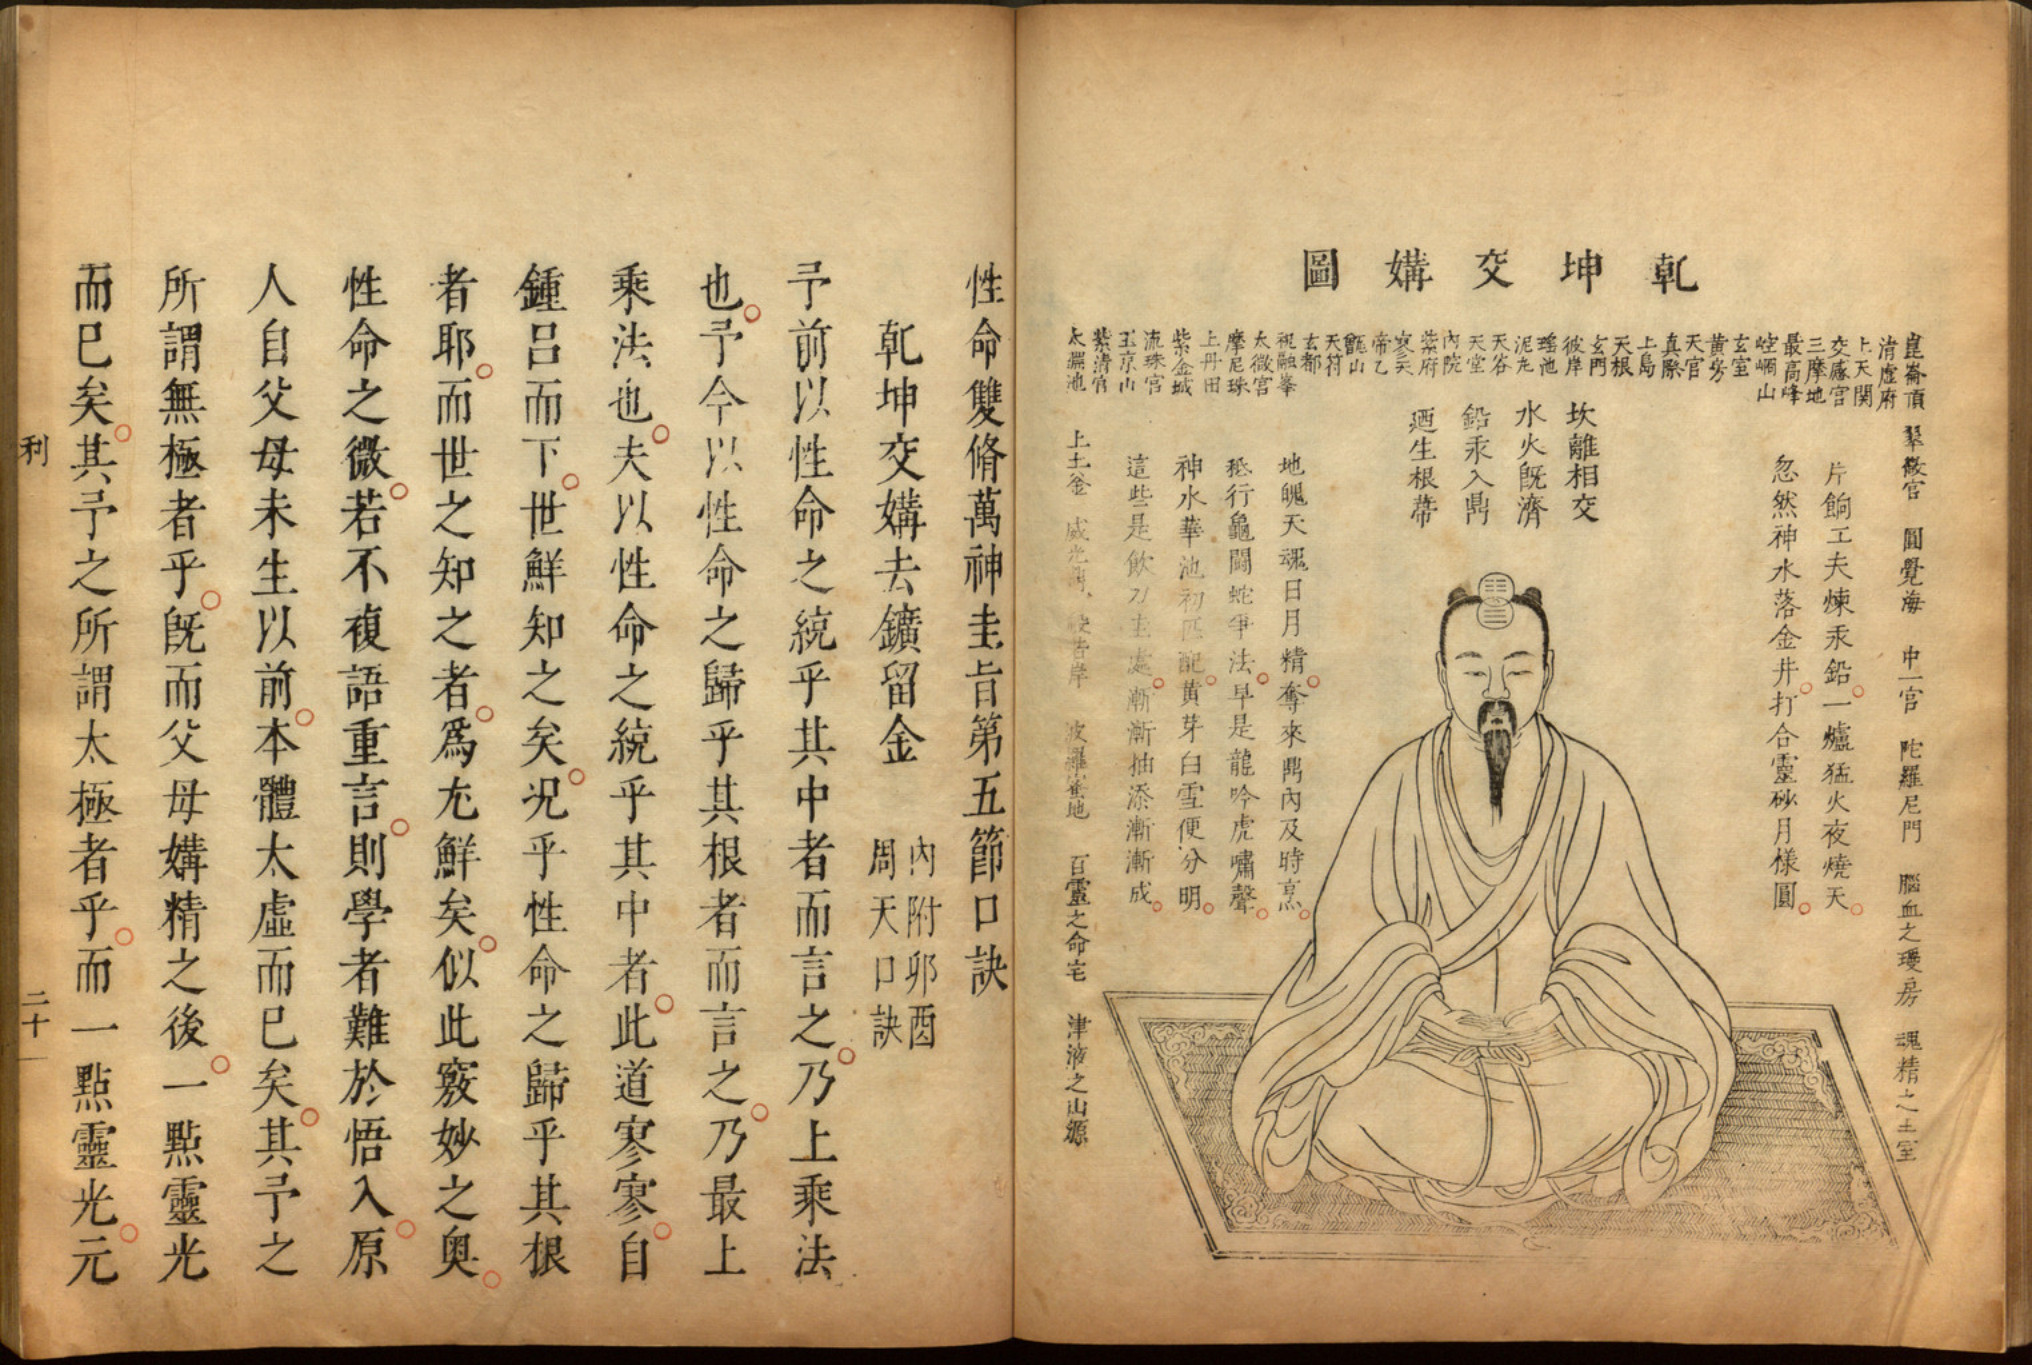 乹坤交媾圖
崑崙頂
清虛府
上天関
交感宫
三摩地
最高峰
崆峒山
玄室
黄房
天宫
真際
上島
天根
玄門
彼岸
瑶池
泥丸
天谷
天堂
內院
紫府
寥天
帝乙
甑山
天符
玄都
祝融峯
太微宫
摩尼珠
上丹田
紫金城
流珠宫
玉京山
紫清宫
太淵池
翠微宫 圓覺海 中一宫 陀羅尼門 腦血之瓊房 魂精之玉室
片餉工夫煉汞鉛一爐猛火夜燒天
忽然神水落金井打合靈砂月樣圓
坎離相交
水火旣濟
鉛汞入鼎
廼生根蒂
地魄天魂日月精奪來鼎內及時烹
秪行龜闘蛇爭法早是龍吟虎嘯聲
神水華池初匹配黄芽白雪便分明
這些是飲刀圭處漸漸抽添漸漸成
上土釜 威光鼎 般若岸 波羅蜜地 百靈之命宅 津液之山源
性命雙脩萬神圭旨第五節口訣
乹坤交媾去鑛留金 內附卯酉
周天口訣
予前以性命之統乎其中者而言之乃上乘法
也予今以性命之歸乎其根者而言之乃最上
乘法也夫以性命之統乎其中者此道寥寥自
鍾呂而下世鮮知之矣况乎性命之歸乎其根
者耶而世之知之者爲尢鮮矣似此竅妙之奥
性命之微若不複語重言則學者難於悟入原
人自父母未生以前本體太虛而已矣其予之
所謂無極者乎旣而父母媾精之後一點靈光
而已矣其予之所謂太極者乎而一點靈光元
利
二十一